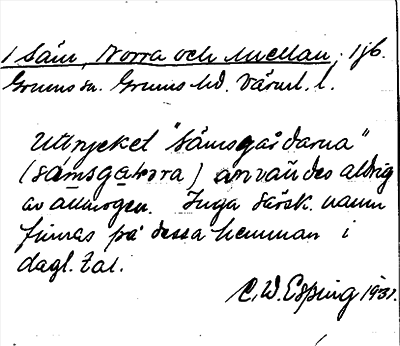 1 Säm, Norra och Mellan, 1 jb.
Grums sn. Grums hd. Värml. l.
Uttrycket "Sämsgårdarna"
(sämsgaƚɐra) användes aldrig
av allmogen. Inga särsk. namn
finnas på dessa hemman i
dagl. tal.
C. W. Esping 1931.